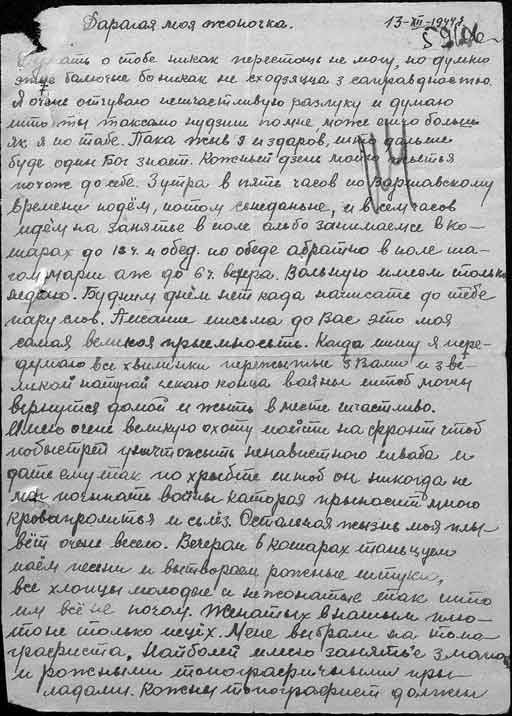 Дарагая моя жоночка.
13-XII-1944 г.
Думать о тобе никак перестоць не могу, но думки
этые бамочне бо никак не сходзяцца з саправдностю.
Я очене отчуваю нешчастливую разлуку и думаю
што ты таксамо нудзиш по мне, може ешчо больш
як я по табе. Пака жыв я и здаров, што дальше
буде один Бог знает. Кожный дзень майго жытья
похож до себе. Зутра в пять часов по Варшавскому
времени подём, потом снеданьне, и в сем часов
идём на занятье в поле альбо занимаемсе в ко-
шарах до 12 ч. и обед. по обеде абратно в поле ша-
гом марш аж до 6 ч. вечера. Вольную имеем только
неделю. Будним днём нет када написать до тебе
пару слов. Писание письма до Вас это моя
самая великая прыемность. Когда пишу я пере-
думаю все хвилинки пережытые з Вами и з ве-
ликой натугой чекаю конца войны штоб можы
вернутся домой и жыть вместе шчастливо.
Имею очене великую охоту пойти на фронт чтоб
побыстрей уничтожыть ненавистного шваба и
дать ему так по хрыбте штоб он никогда не
мог почынать войны каторая прыносит много
кровапролитья и сьлёз. Остальная жызнь моя плы
вёт очене весело. Вечером в кошарах таньцуем
паём песни и вытвораем рожные штуки,
все хлопцы молодые и нежонатые так што
им всё не почом. Жонатых в нашым плю-
тоне только шесцёх. Мене выбрали на топо-
графиста. Найболей имею занятье з мапой
и рожными топографичными пры-
ладами. Кожны топографист должен